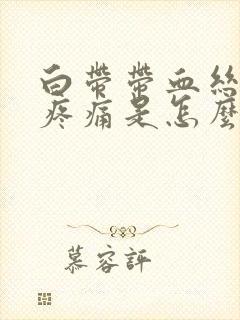 白带带血丝
疼痛是怎麽
慕容評